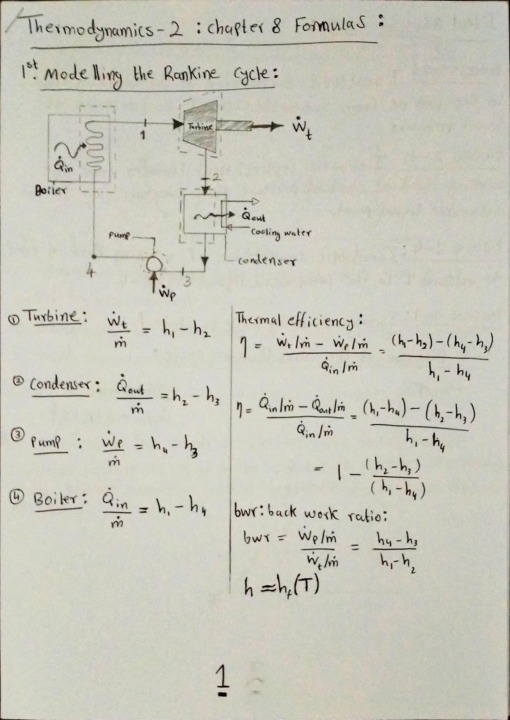 Thermodynamics-2 : chapter 8 Formulas :
1st. Modelling the Rankine cycle:
Turbine
Ẇt
1
Q̇in
Boiler
2
Q̇out
cooling water
Pump
condenser
4
3
Ẇp
① Turbine: Ẇt/ṁ = h₁ - h₂
② Condenser: Q̇out/ṁ = h₂ - h₃
③ Pump : Ẇp/ṁ = h₄ - h₃
④ Boiler: Q̇in/ṁ = h₁ - h₄
Thermal efficiency:
η = (Ẇt/ṁ - Ẇp/ṁ)/(Q̇in/ṁ) = ((h-h₂)-(h₄-h₃))/(h₁-h₄)
η = (Q̇in/ṁ - Q̇out/ṁ)/(Q̇in/ṁ) = ((h₁-h₄) - (h₂-h₃))/(h₁-h₄)
= 1 - (h₂-h₃)/(h₁-h₄)
bwr: back work ratio:
bwr = (Ẇp/ṁ)/(Ẇt/ṁ) = (h₄-h₃)/(h₁-h₂)
h ≈ hf(T)
1